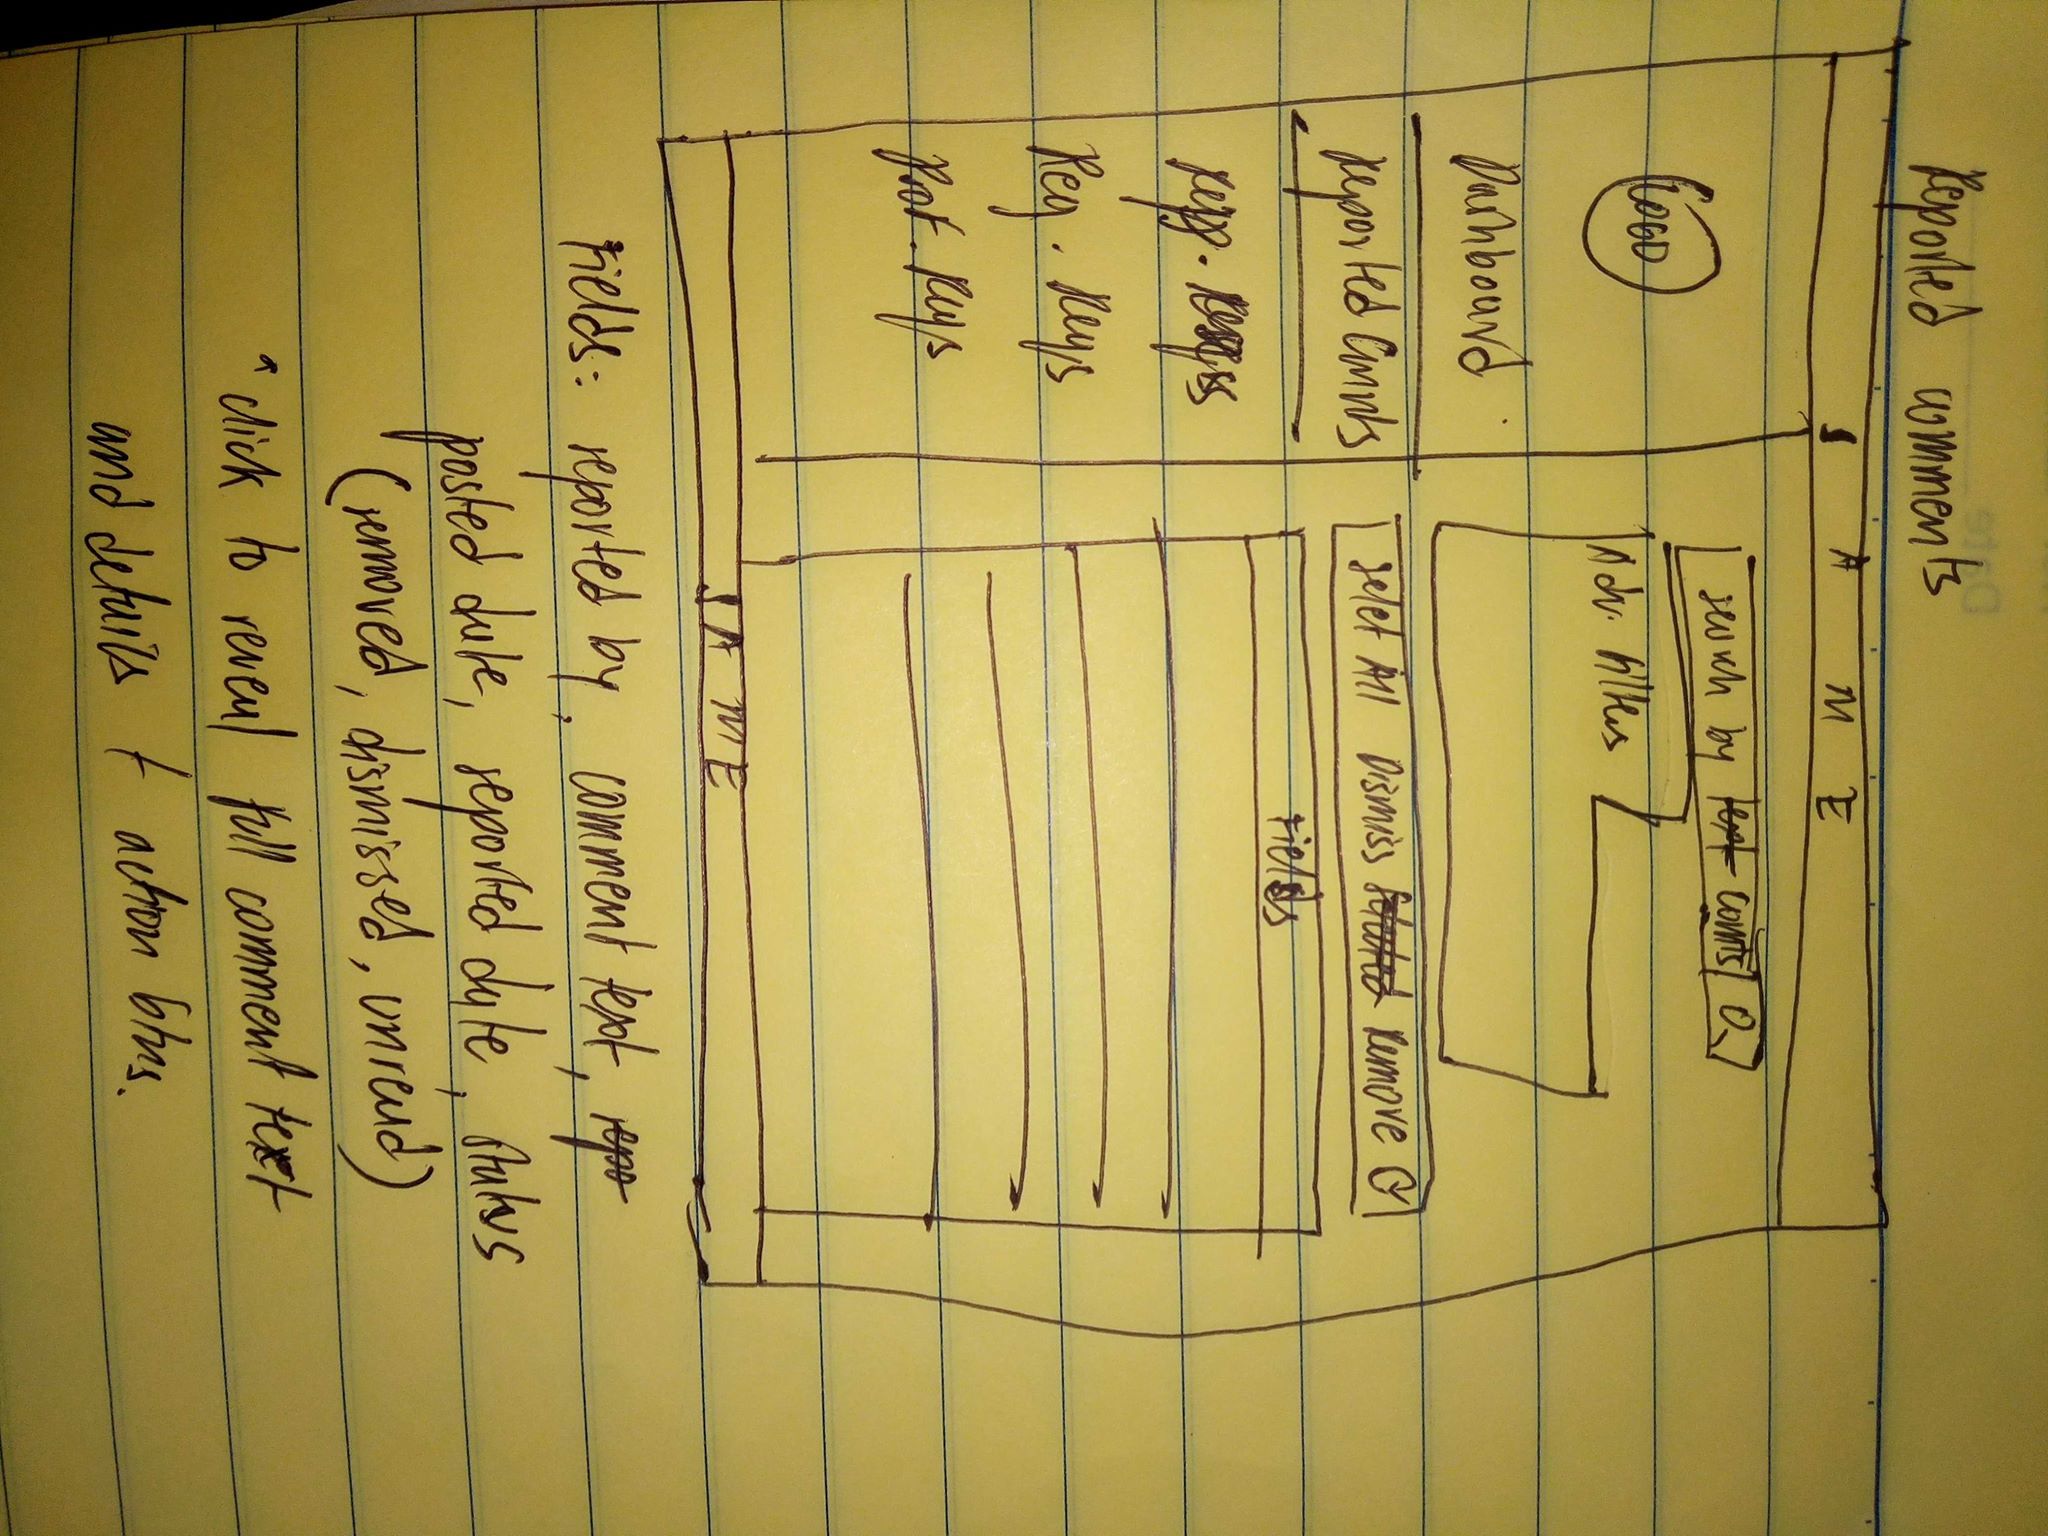 Reported comments
S A M E
LOGO
Dashboard
Reported Cmnts
Reg. Keys
Prot. Keys
search by text comnts
Adv. Filters
Selet All Dismiss Selected Remove
Fields
S A M E
Fields: reported by, comment text, repo
posted date, reported date, status
(removed, dismissed, unread)
* click to reveal full comment text
and details + action btns.